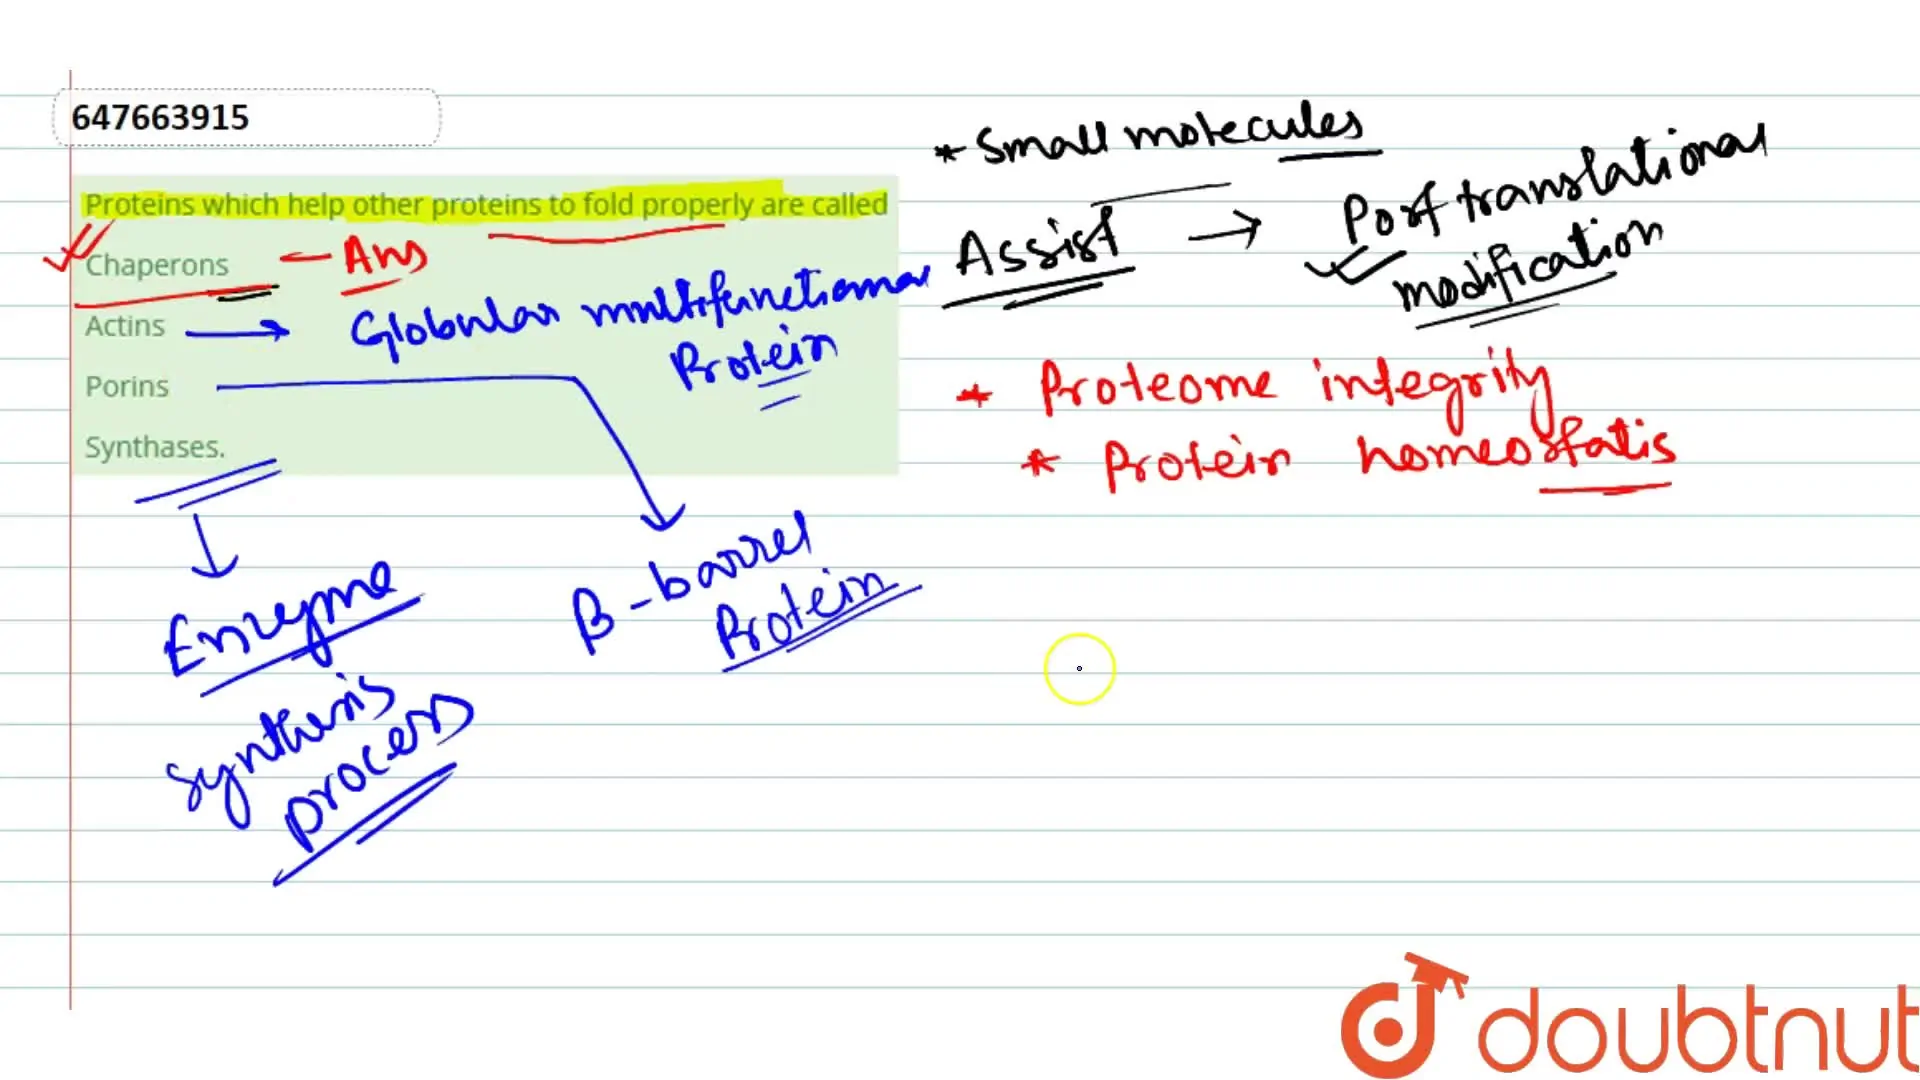 647663915
Proteins which help other proteins to fold properly are called
Chaperons - Ans
Actins → Globular multifunctional
Protein
Porins
Synthases.
Enzyme
Synthesis
process
β-barrel
Protein
* Small molecules
Assist → Post translational
modification
* Proteome integrity
* Protein homeostatis
doubtnut